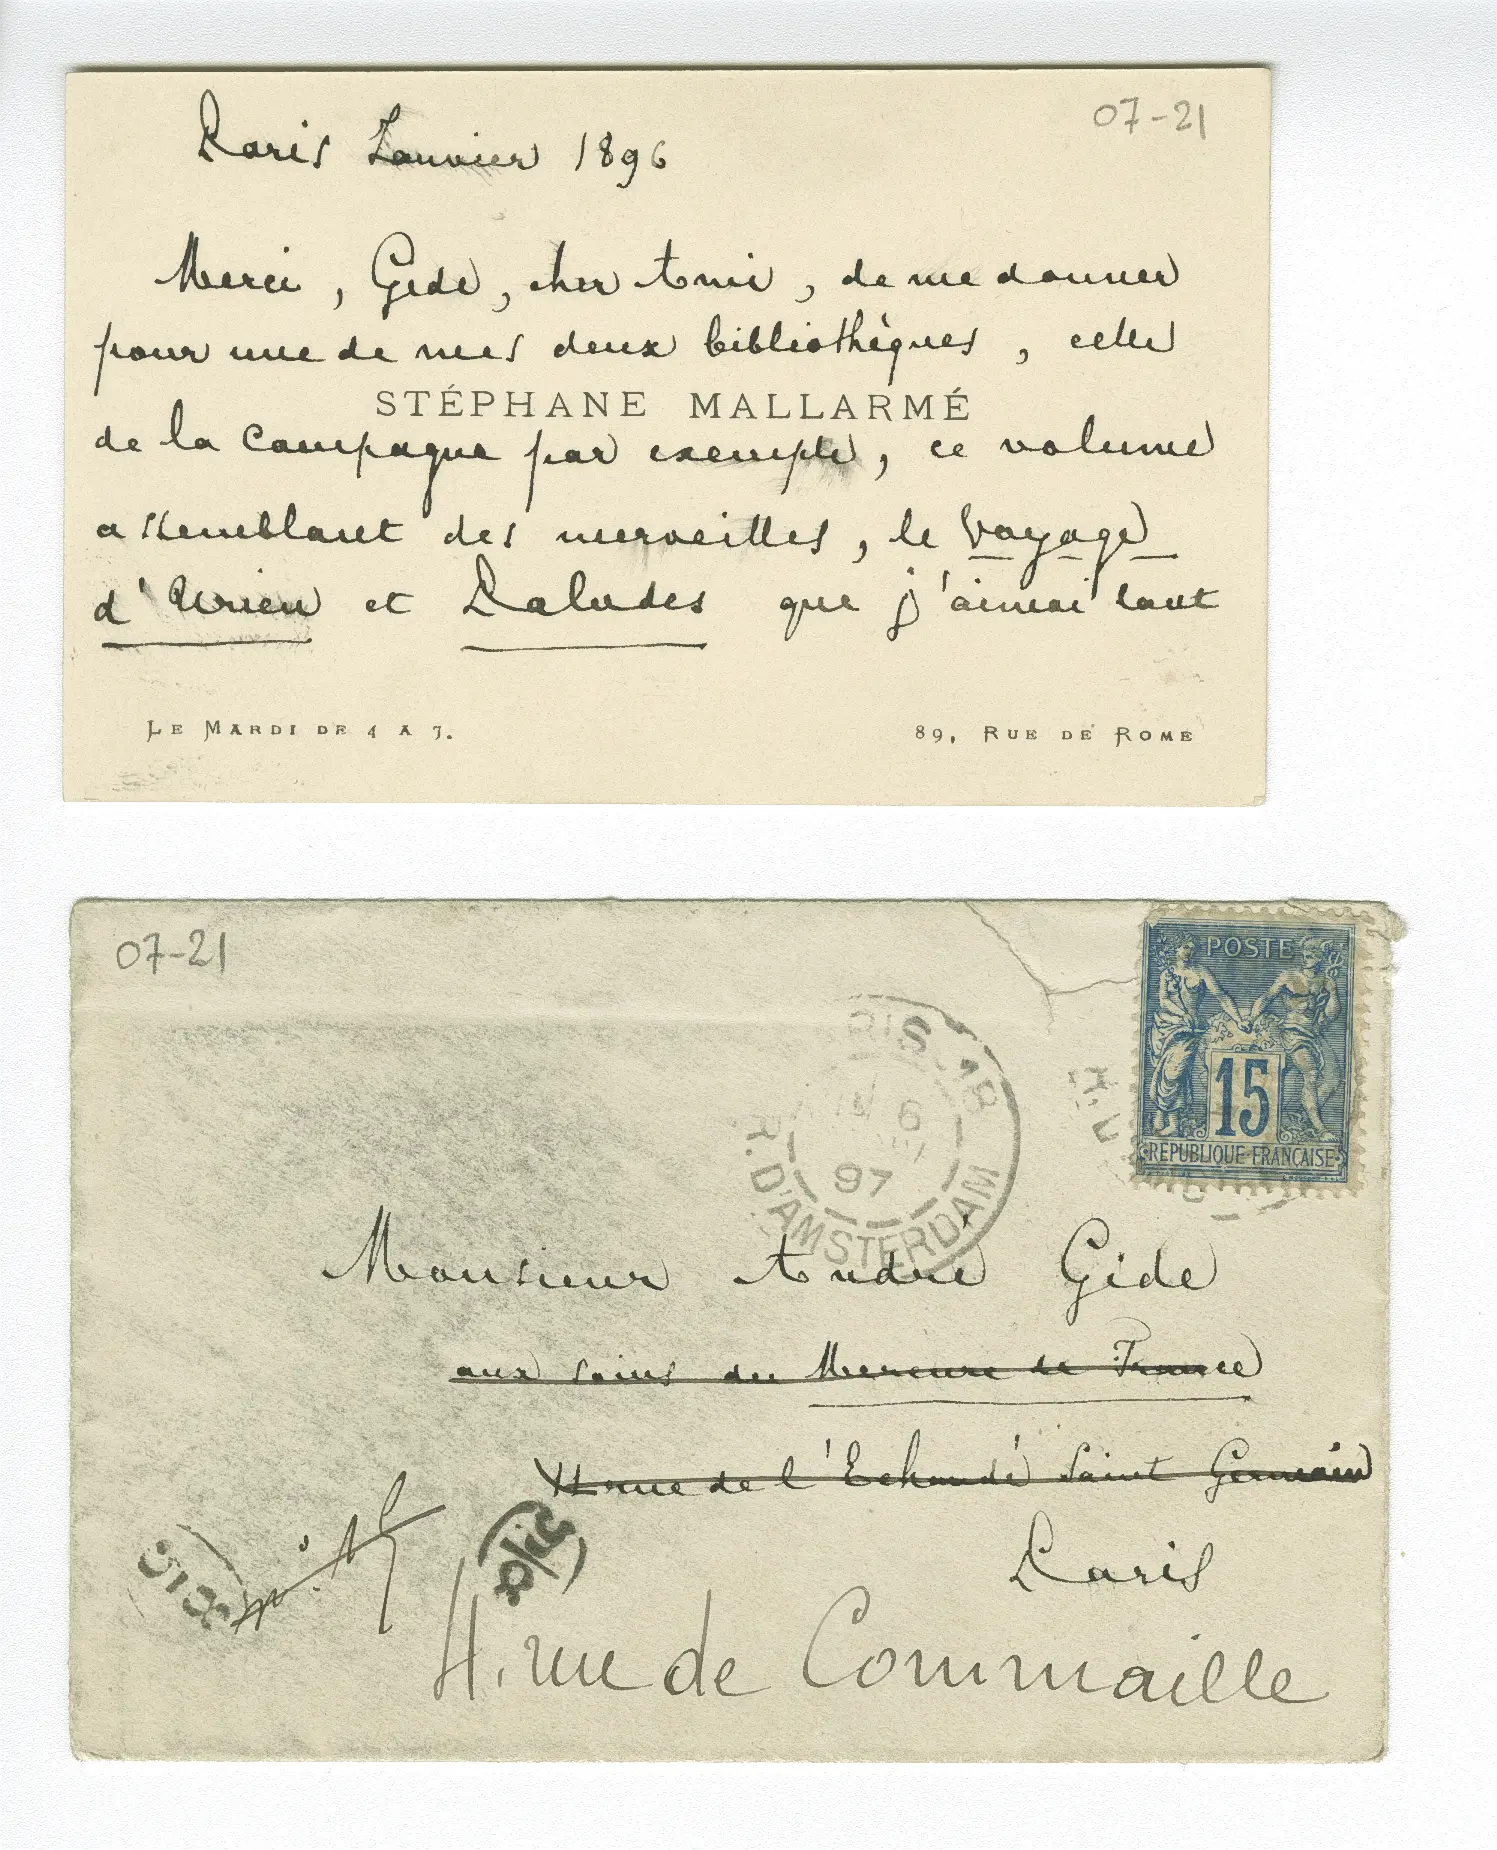 07-21
Paris Janvier 1896
Merci, Gide, cher Ami, de me donner
pour une de mes deux bibliothèques, celle
STÉPHANE MALLARMÉ
de la campagne par exemple, ce volume
assemblant des merveilles, le Voyage
d'Urien et Paludes que j'aimai tant
LE MARDI DE 4 A 7.
89, RUE DE ROME
07-21
POSTE
15
REPUBLIQUE FRANÇAISE
RIS 18
6
97
R. D'AMSTERDAM
Monsieur André Gide
aux soins du Mercure de France
rue de l'Echaudé Saint Germain
Paris
4. rue de Commaille